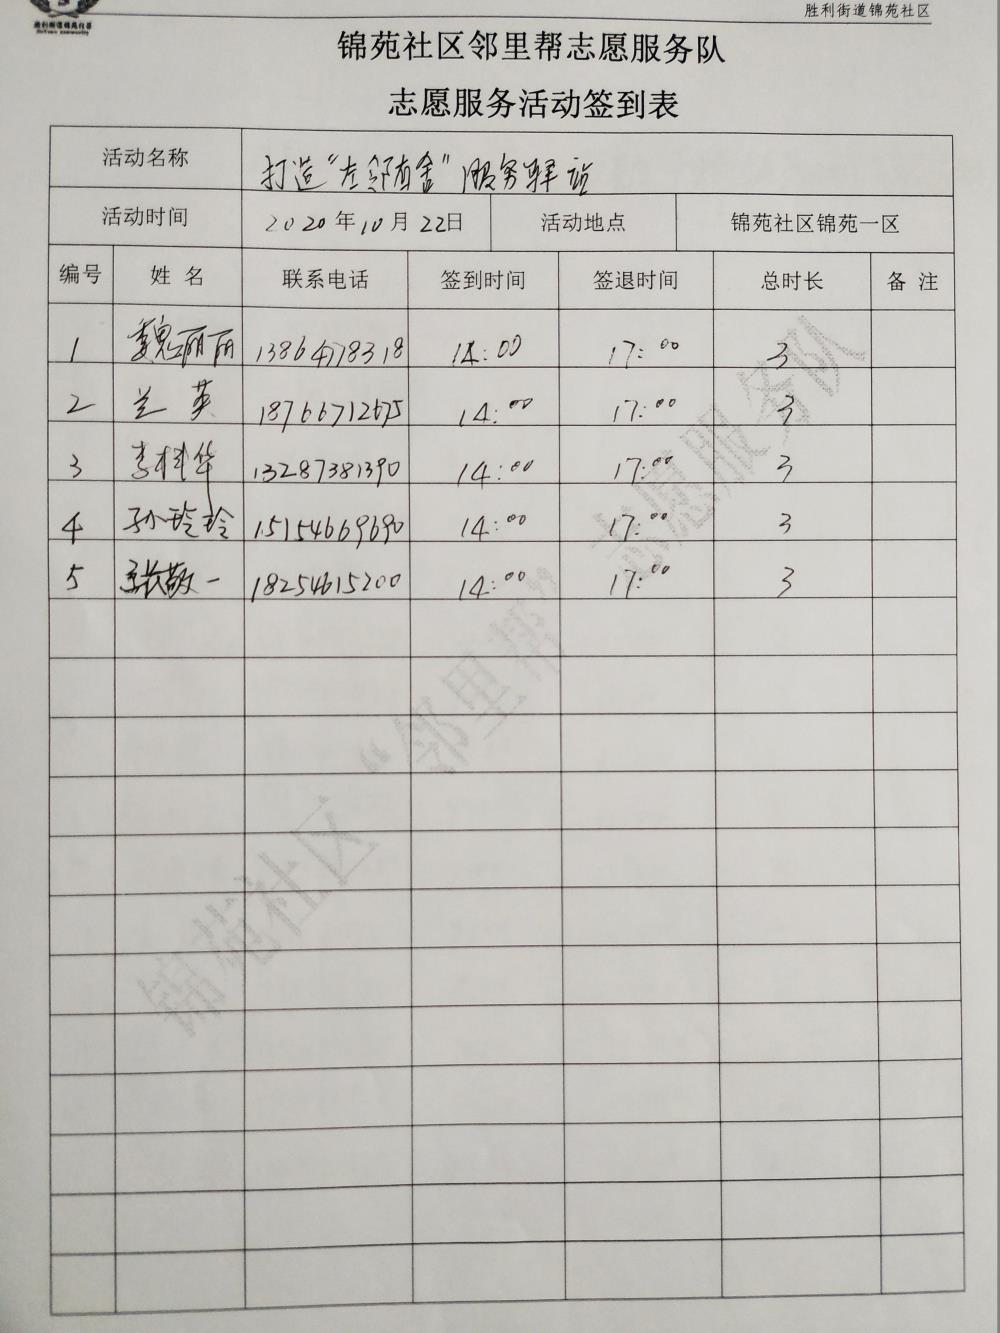 胜利街道锦苑社区
锦苑社区邻里帮志愿服务队
志愿服务活动签到表
活动名称 打造“左邻右舍”服务驿站
活动时间 2020年10月22日 活动地点 锦苑社区锦苑一区
编号 姓名 联系电话 签到时间 签退时间 总时长 备注
1 魏丽丽 13864778318 14:00 17:00 3
2 兰英 18766712675 14:00 17:00 3
3 李桂华 13287381390 14:00 17:00 3
4 孙玲玲 15154669690 14:00 17:00 3
5 张敬一 18254615200 14:00 17:00 3
锦苑社区“邻里帮”志愿服务队